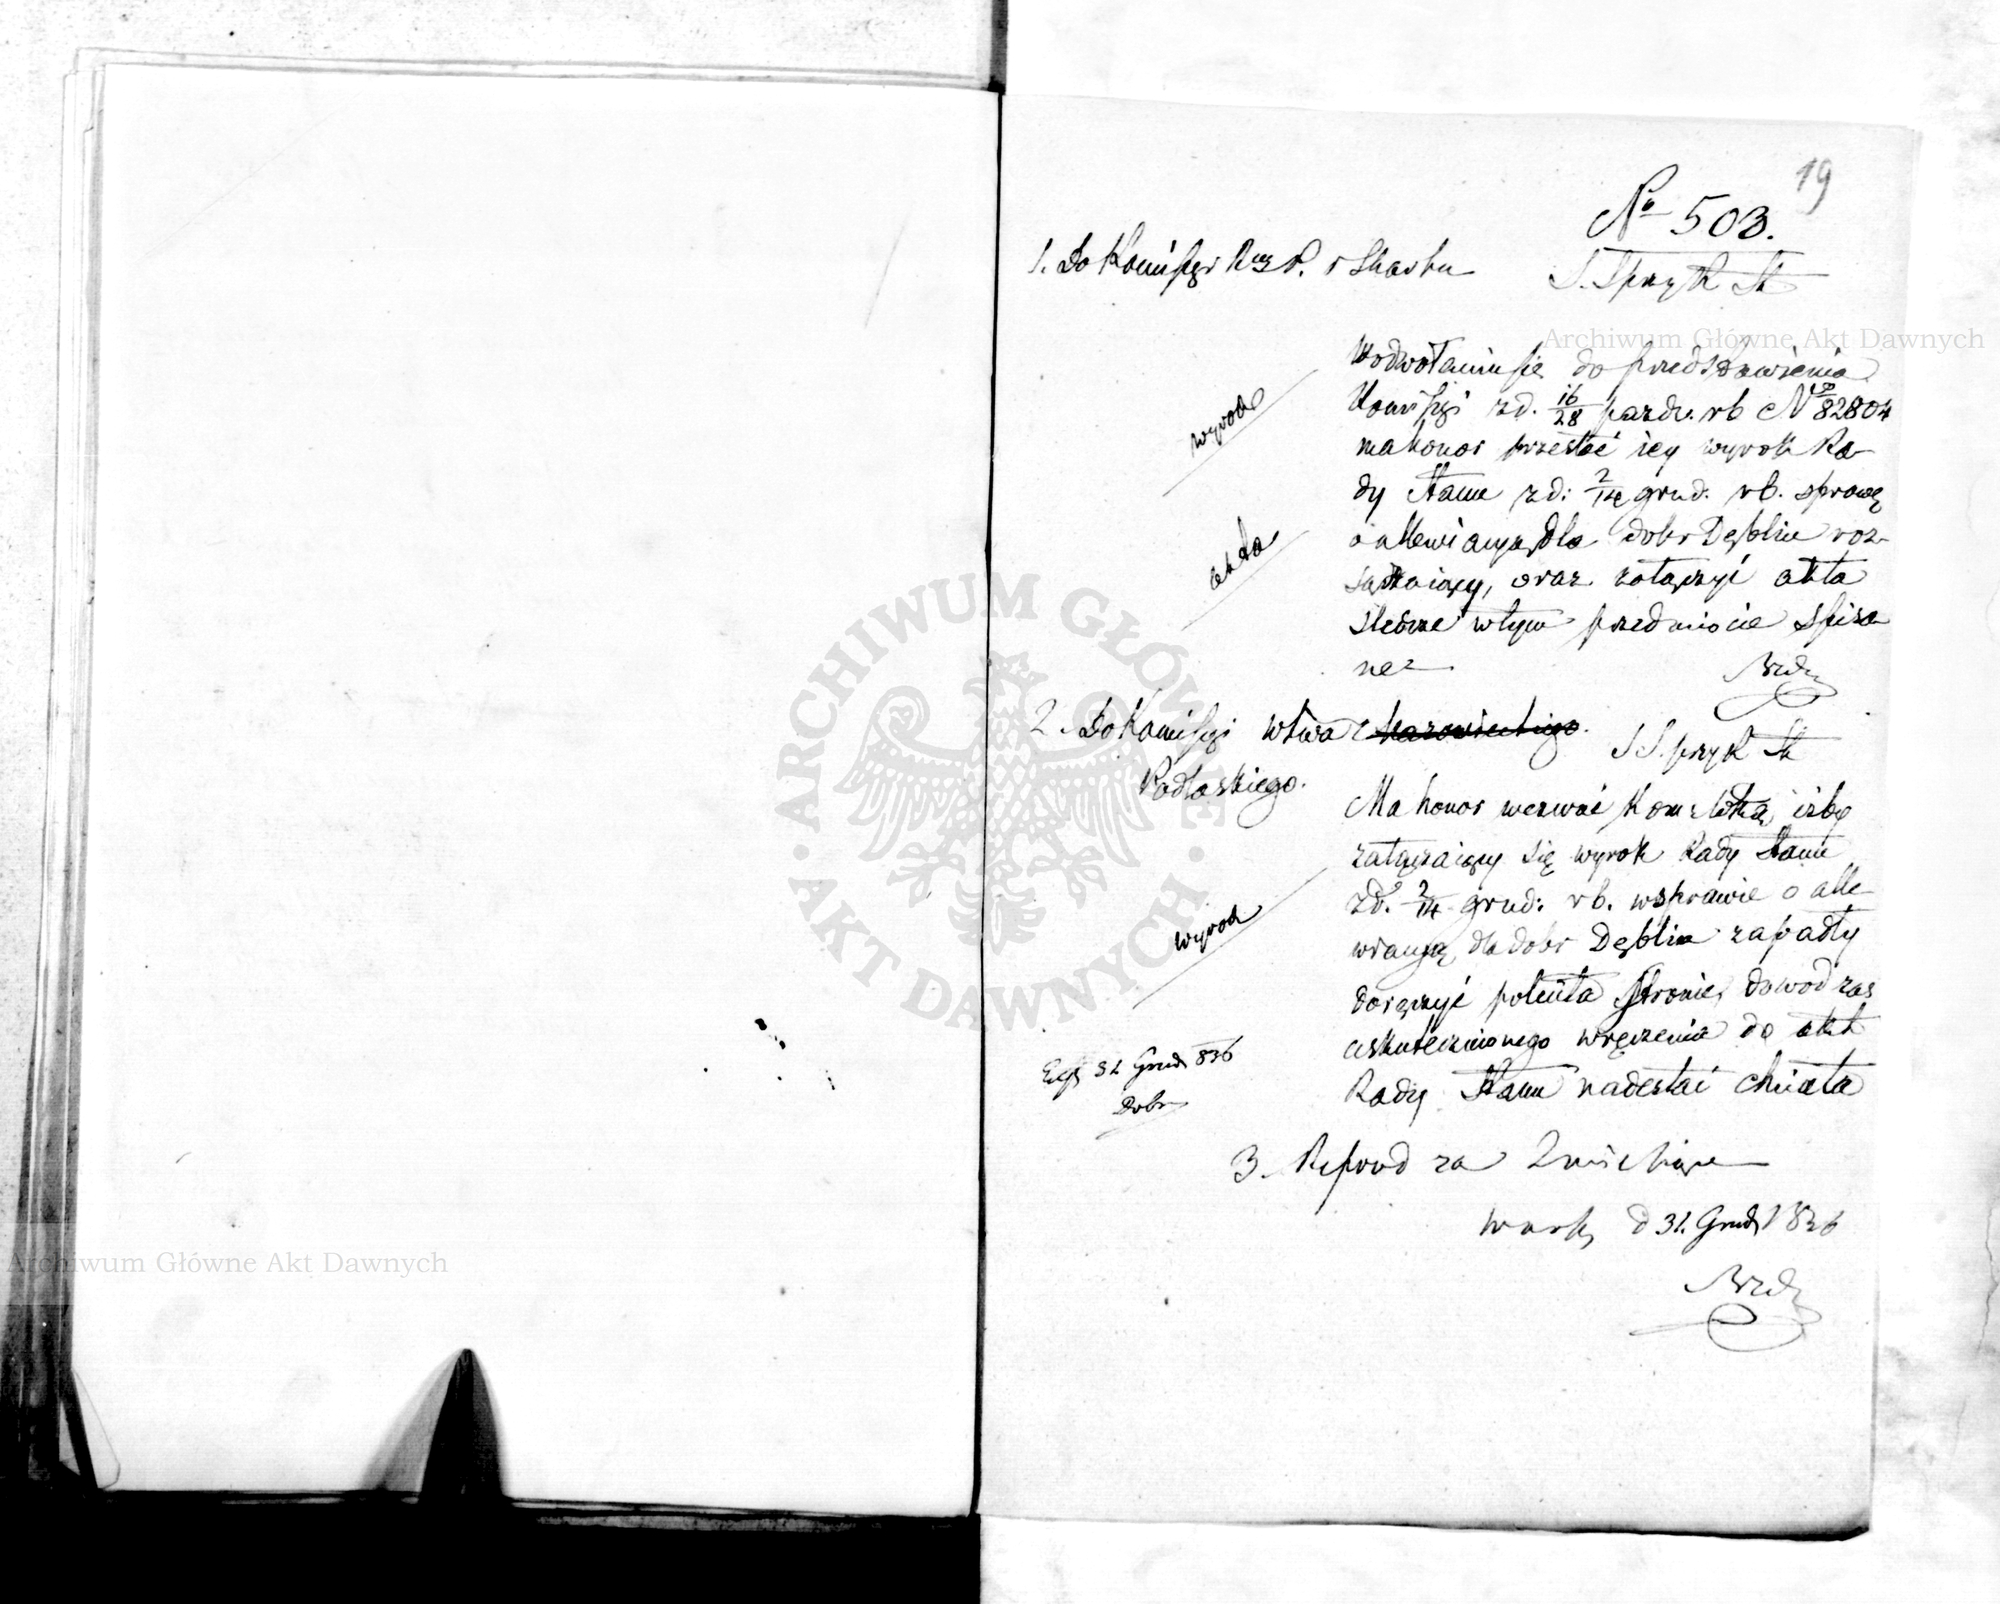 19
№ 503.
1. Do Komissyi Rząd P. i Skarbu
S. Sprzyk St
W odwołaniu się do przedstawienia
Komissyi z d. 16/28 pazdz. rb № 82804
ma honor przesłać iey wyrok Ra-
dy Stanu z d: 2/14 grud: rb. sprawę
o allewiacyą dla dobr Dęblin roz-
sądzaiący, oraz załączyć akta
śledcze w tym przedmiocie spisa
ne
wyrok
akta
2. Do Komissyi Wtwa Mazowieckiego.
Podlaskiego.
S S. przyk St
Ma honor wezwać Kom: Wtką, iżby
załączaiący się wyrok Rady Stanu
z d. 2/14 grud: rb. w sprawie o alle
wiacyą dla dobr Dęblin zapadły
doręczyć stronie, dowód zaś
uskutecznionego wręczenia do akt
Rady Stanu nadesłać chciała
wyrok
31 Grud 836
3. Reprod za 2 miesiące
Warsz, d 31. Grud 1836
Archiwum Główne Akt Dawnych
Archiwum Główne Akt Dawnych
ARCHIWUM GŁÓWNE · AKT DAWNYCH ·